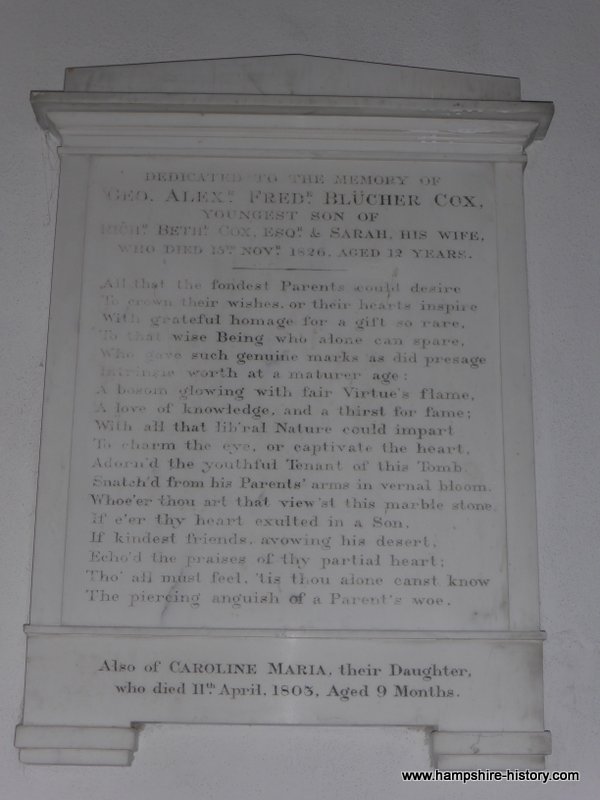 DEDICATED TO THE MEMORY OF
GEO. ALEXR. FREDK. BLÜCHER COX,
YOUNGEST SON OF
RICHD. BETHL. COX, ESQR. & SARAH, HIS WIFE,
WHO DIED 15TH NOVR. 1826, AGED 12 YEARS.
All that the fondest Parents could desire
To crown their wishes, or their hearts inspire
With grateful homage for a gift so rare,
To that wise Being who alone can spare,
Who gave such genuine marks as did presage
Intrinsic worth at a maturer age:
A bosom glowing with fair Virtue's flame,
A love of knowledge, and a thirst for fame;
With all that lib'ral Nature could impart
To charm the eye, or captivate the heart,
Adorn'd the youthful Tenant of this Tomb,
Snatch'd from his Parents' arms in vernal bloom.
Whoe'er thou art that view'st this marble stone,
If e'er thy heart exulted in a Son,
If kindest friends, avowing his desert,
Echo'd the praises of thy partial heart;
Tho' all must feel, 'tis thou alone canst know
The piercing anguish of a Parent's woe.
Also of CAROLINE MARIA, their Daughter,
who died 11th. April, 1805, Aged 9 Months.
www.hampshire-history.com